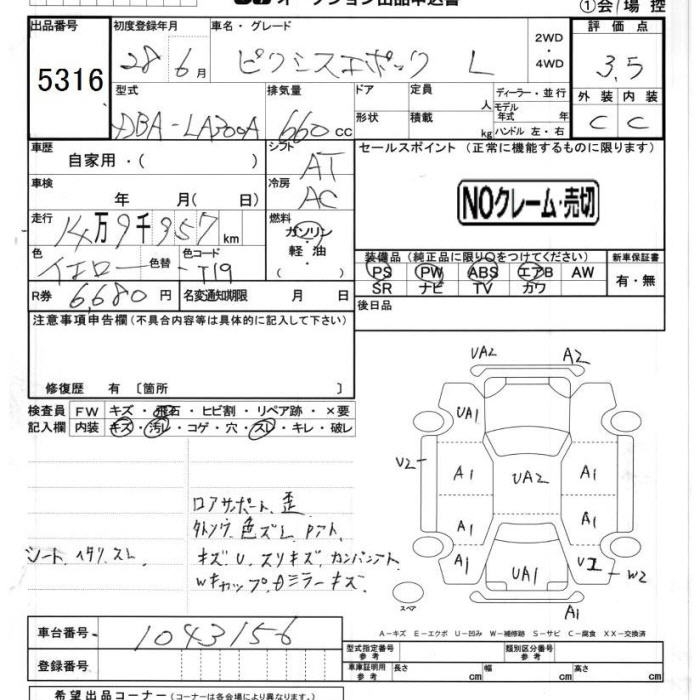 オークション出品申込書
①会 場 控
出品番号
5316
初度登録年月
28 6月
車名・グレード
ピクシスエポック L
2WD
・
4WD
評価点
3.5
外装 内装
C C
型式
DBA-LA300A
排気量
660 cc
ドア
形状
定員 人
積載 kg
ディーラー・並行
モデル年式 年
ハンドル 左・右
車歴
自家用・( )
シフト
AT
車検
年 月( 日)
冷房
AC
走行
14万9千957km
燃料
ガソリン
軽・油
色
イエロー 色替
色コード
T19
R券 6,680円
名変通知期限 月 日
セールスポイント(正常に機能するものに限ります)
NOクレーム・売切
装備品(純正品に限り○をつけてください)
PS PW ABS エアB AW
SR ナビ TV カワ
新車保証書
有・無
後日品
注意事項申告欄(不具合内容等は具体的に記入して下さい)
修復歴 有〔箇所 〕
検査員
記入欄
FW キズ・飛石・ヒビ割・リペア跡・×要
内装 キズ・汚レ・コゲ・穴・スレ・キレ・破レ
シート、イタリ、スレ
ロアサポート、歪
色ズレ
キズU、スリキズ
Wキャップ、Dミラーキズ
UA2 A2
UA1
V2 A1 UA2 A1
A1 A1
A1 UA1 W2
A1
スペア
A-キズ E-エクボ U-凹み W-補修跡 S-サビ C-腐食 XX-交換済
車台番号 1043156
登録番号
型式指定番号 参考
類別区分番号 参考
車庫証明用 参考 長さ cm 幅 cm 高さ cm
希望出品コーナー(コーナーは各会場により異なります。)